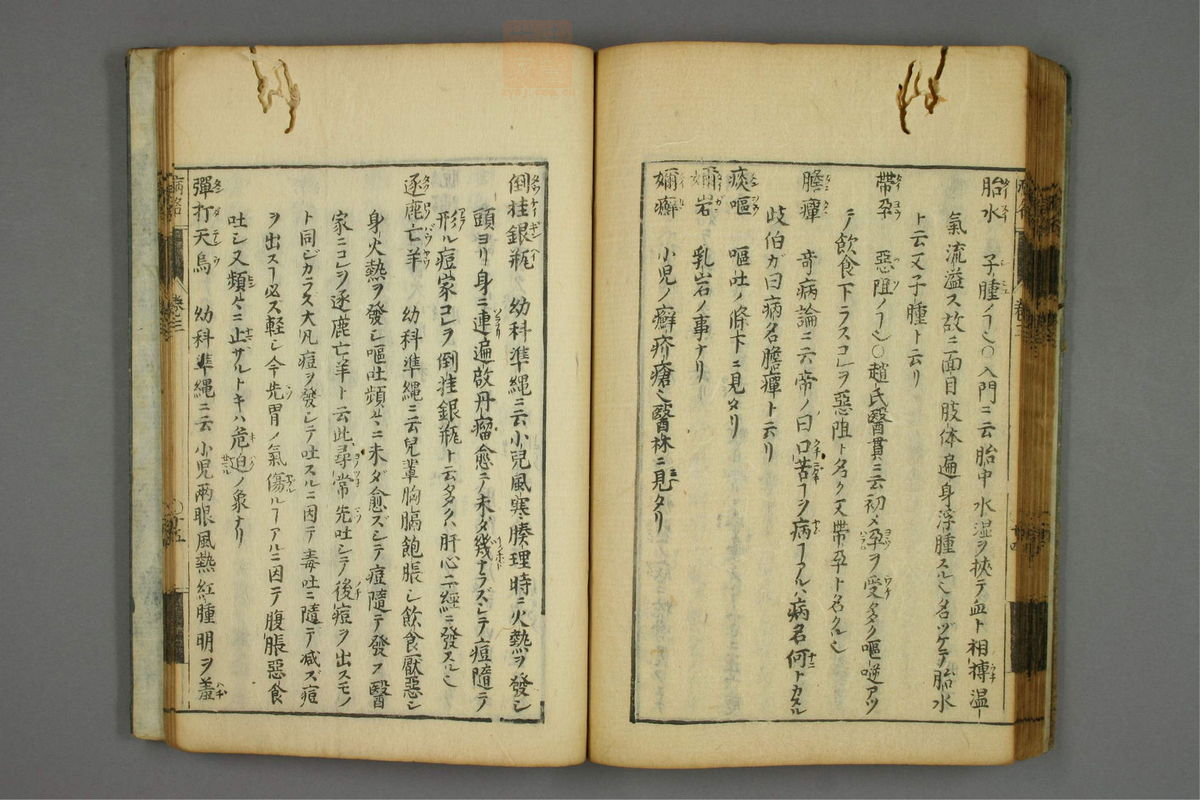 胎水 子腫ノヿ也○入門ニ云胎中水湿ヲ挾テ血ト相搏湿
氣流溢ス故ニ面目肢体遍身浮腫スル也名ヅケテ胎水
ト云又子腫ト云リ
帶孕 惡阻ノヿ也○趙氏醫貫ニ云初メ孕ヲ受多ク嘔逆アツ
テ飲食下ラスコレヲ惡阻ト名ク又帶孕ト名クル也
膽癉 奇病論ニ云帝ノ曰口苦ヿヲ病ヿアルハ病名何トカスル
岐伯ガ曰病名膽癉ト云リ
痰嘔 嘔吐ノ條下ニ見タリ
嬭岩 乳岩ノ事ナリ
嬭癬 小児ノ癬疥瘡也醫林ニ見タリ
倒挂銀瓶 幼科準繩ニ云小兒風寒腠理時ニ火熱ヲ發シ
頭ヨリ身ニ連遍啟丹瘤愈ニ未ダ幾ナラズシテ痘隨テ
形ル痘家コレヲ倒挂銀瓶ト云多クハ肝心二經ニ發スル也
逐鹿亡羊 幼科準繩ニ云兒輩胸膈飽脹シ飲食厭惡シ
身火熱ヲ發シ嘔吐頻リニ未ダ愈ズシテ痘隨テ發ス醫
家ニコレヲ逐鹿亡羊ト云此尋常先吐シテ後痘ヲ出スモノ
ト同ジカラス大凡痘ヲ發シテ吐スルニ因テ毒吐ニ隨テ減ズ痘
ヲ出スヿ必ズ軽シ今先胃ノ氣傷ルヿアルニ因テ腹脹惡食
吐シ又頻リニ止ザルトキハ危迫ノ象ナリ
彈打天鳥 幼科準繩ニ云小児兩眼風熱紅腫明ヲ羞
病名
巻三